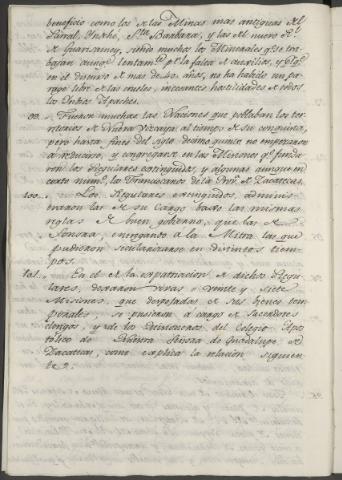 beneficio como los de las Minas mas antiguas del
Parral, Sta. Barbara, y las del nuevo Rl.
de Guarisamey, siendo muchos los Minerales qe. se tra-
bajan aunqe. lentamte. pr. la falta de auxilios, y
en el discurso de mas de 40. años, no ha habido un pa-
rage libre de las crueles, incesantes hostilidades de los
Indios Apaches.
99.. Fueron muchas las Naciones que poblaban los ter-
ritorios de Nueva Vizcaya al tiempo de su conquista,
pero hasta fines del siglo decimo quinto no empezaron
a reducirse, y congregarse en las Misiones qe. funda-
ron los Regulares extinguidos, y algunas aunque en
corto numo. los Franciscanos de la Prova. de Zacatecas.
100.. Los Regulares extinguidos, adminis-
traron las de su cargo bajo las mismas
reglas de buen gobierno, que las de
Sonora, entregando a la Mitra las que
pudieron secularizarse en distintos tiem-
pos.
101.. En el de la expatriacion de dichos Regu-
lares, dexaron vivas veinte y siete
Misiones, que despojadas de sus bienes tem-
porales, se pusieron a cargo de Sacerdotes
clerigos, y de los Religiosos del Colegio Apos-
tolico de Nuestra Señora de Guadalupe de
Zacatecas, como explica la relacion siguien-
te: